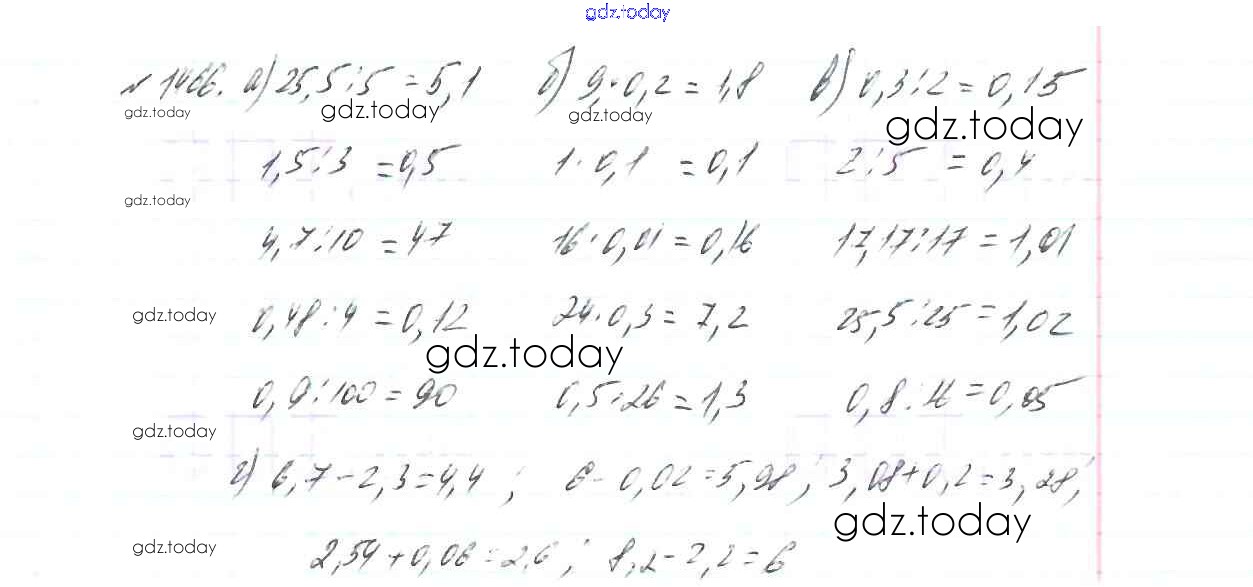 gdz.today
№ 1466. а) 25,5:5 = 5,1 б) 9·0,2 = 1,8 в) 0,3:2 = 0,15
gdz.today gdz.today gdz.today gdz.today
1,5:3 = 0,5 1·0,1 = 0,1 2:5 = 0,4
gdz.today
4,7:10 = 47 16·0,01 = 0,16 17,17:17 = 1,01
gdz.today 0,48:4 = 0,12 24·0,3 = 7,2 25,5:25 = 1,02
gdz.today
0,9:100 = 90 0,5·26 = 1,3 0,8:16 = 0,05
gdz.today
г) 6,7-2,3=4,4 ; 6-0,02=5,98 ; 3,08+0,2=3,28;
gdz.today
gdz.today 2,54+0,06=2,6 ; 8,2-2,2=6